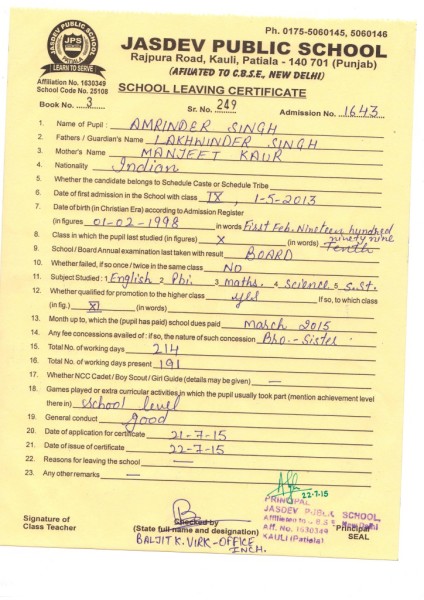 JASDEV PUBLIC SCHOOL
PATIALA
JPS
LEARN TO SERVE
Ph. 0175-5060145, 5060146
JASDEV PUBLIC SCHOOL
Rajpura Road, Kauli, Patiala - 140 701 (Punjab)
(AFILIATED TO C.B.S.E., NEW DELHI)
Affiliation No. 1630349
School Code No. 25108
SCHOOL LEAVING CERTIFICATE
Book No. 3 Sr. No. 249 Admission No. 1643
1. Name of Pupil : AMRINDER SINGH
2. Fathers / Guardian's Name LAKHWINDER SINGH
3. Mother's Name MANJEET KAUR
4. Nationality Indian
5. Whether the candidate belongs to Schedule Caste or Schedule Tribe
6. Date of first admission in the School with class IX, 1-5-2013
7. Date of birth (in Christian Era) according to Admission Register
(in figures) 01-02-1998 in words First Feb. Nineteen hundred
ninety nine
8. Class in which the pupil last studied (in figures) X (in words) Tenth
9. School / Board Annual examination last taken with result BOARD
10. Whether failed, if so once / twice in the same class NO
11. Subject Studied : 1 English 2 Pbi. 3 maths. 4 science 5 S.St.
12. Whether qualified for promotion to the higher class yes If so, to which class
(in fig.) XI (in words)
13. Month up to, which the (pupil has paid) school dues paid March 2015
14. Any fee concessions availed of : if so, the nature of such concession Bro.-Sister
15. Total No. of working days 214
16. Total No. of working days present 191
17. Whether NCC Cadet / Boy Scout / Girl Guide (details may be given) —
18. Games played or extra curricular activities in which the pupil usually took part (mention achievement level
there in) school level
19. General conduct good
20. Date of application for certificate 21-7-15
21. Date of issue of certificate 22-7-15
22. Reasons for leaving the school —
23. Any other remarks —
22-7-15
PRINCIPAL
JASDEV PUBLIC SCHOOL,
New Delhi
Aff. No. 1630349
KAULI (Patiala)
Signature of
Class Teacher
Checked by
(State full name and designation)
Principal
SEAL
BALJIT K. VIRK - OFFICE
INCH.